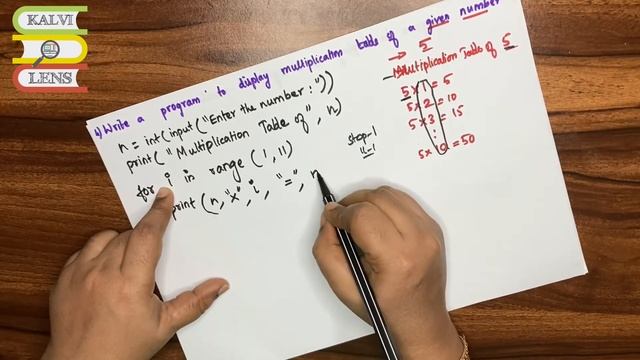 KALVI
LENS
1) Write a program to display multiplication table of a given number
n = int(input("Enter the number : "))
print("Multiplication Table of", n)
for i in range (1,11)
print (n,"x", i, "=", n
stop-1
11-1
→ 5
Multiplication Table of 5
5 × 1 = 5
5 × 2 = 10
5 × 3 = 15
5 × 10 = 50